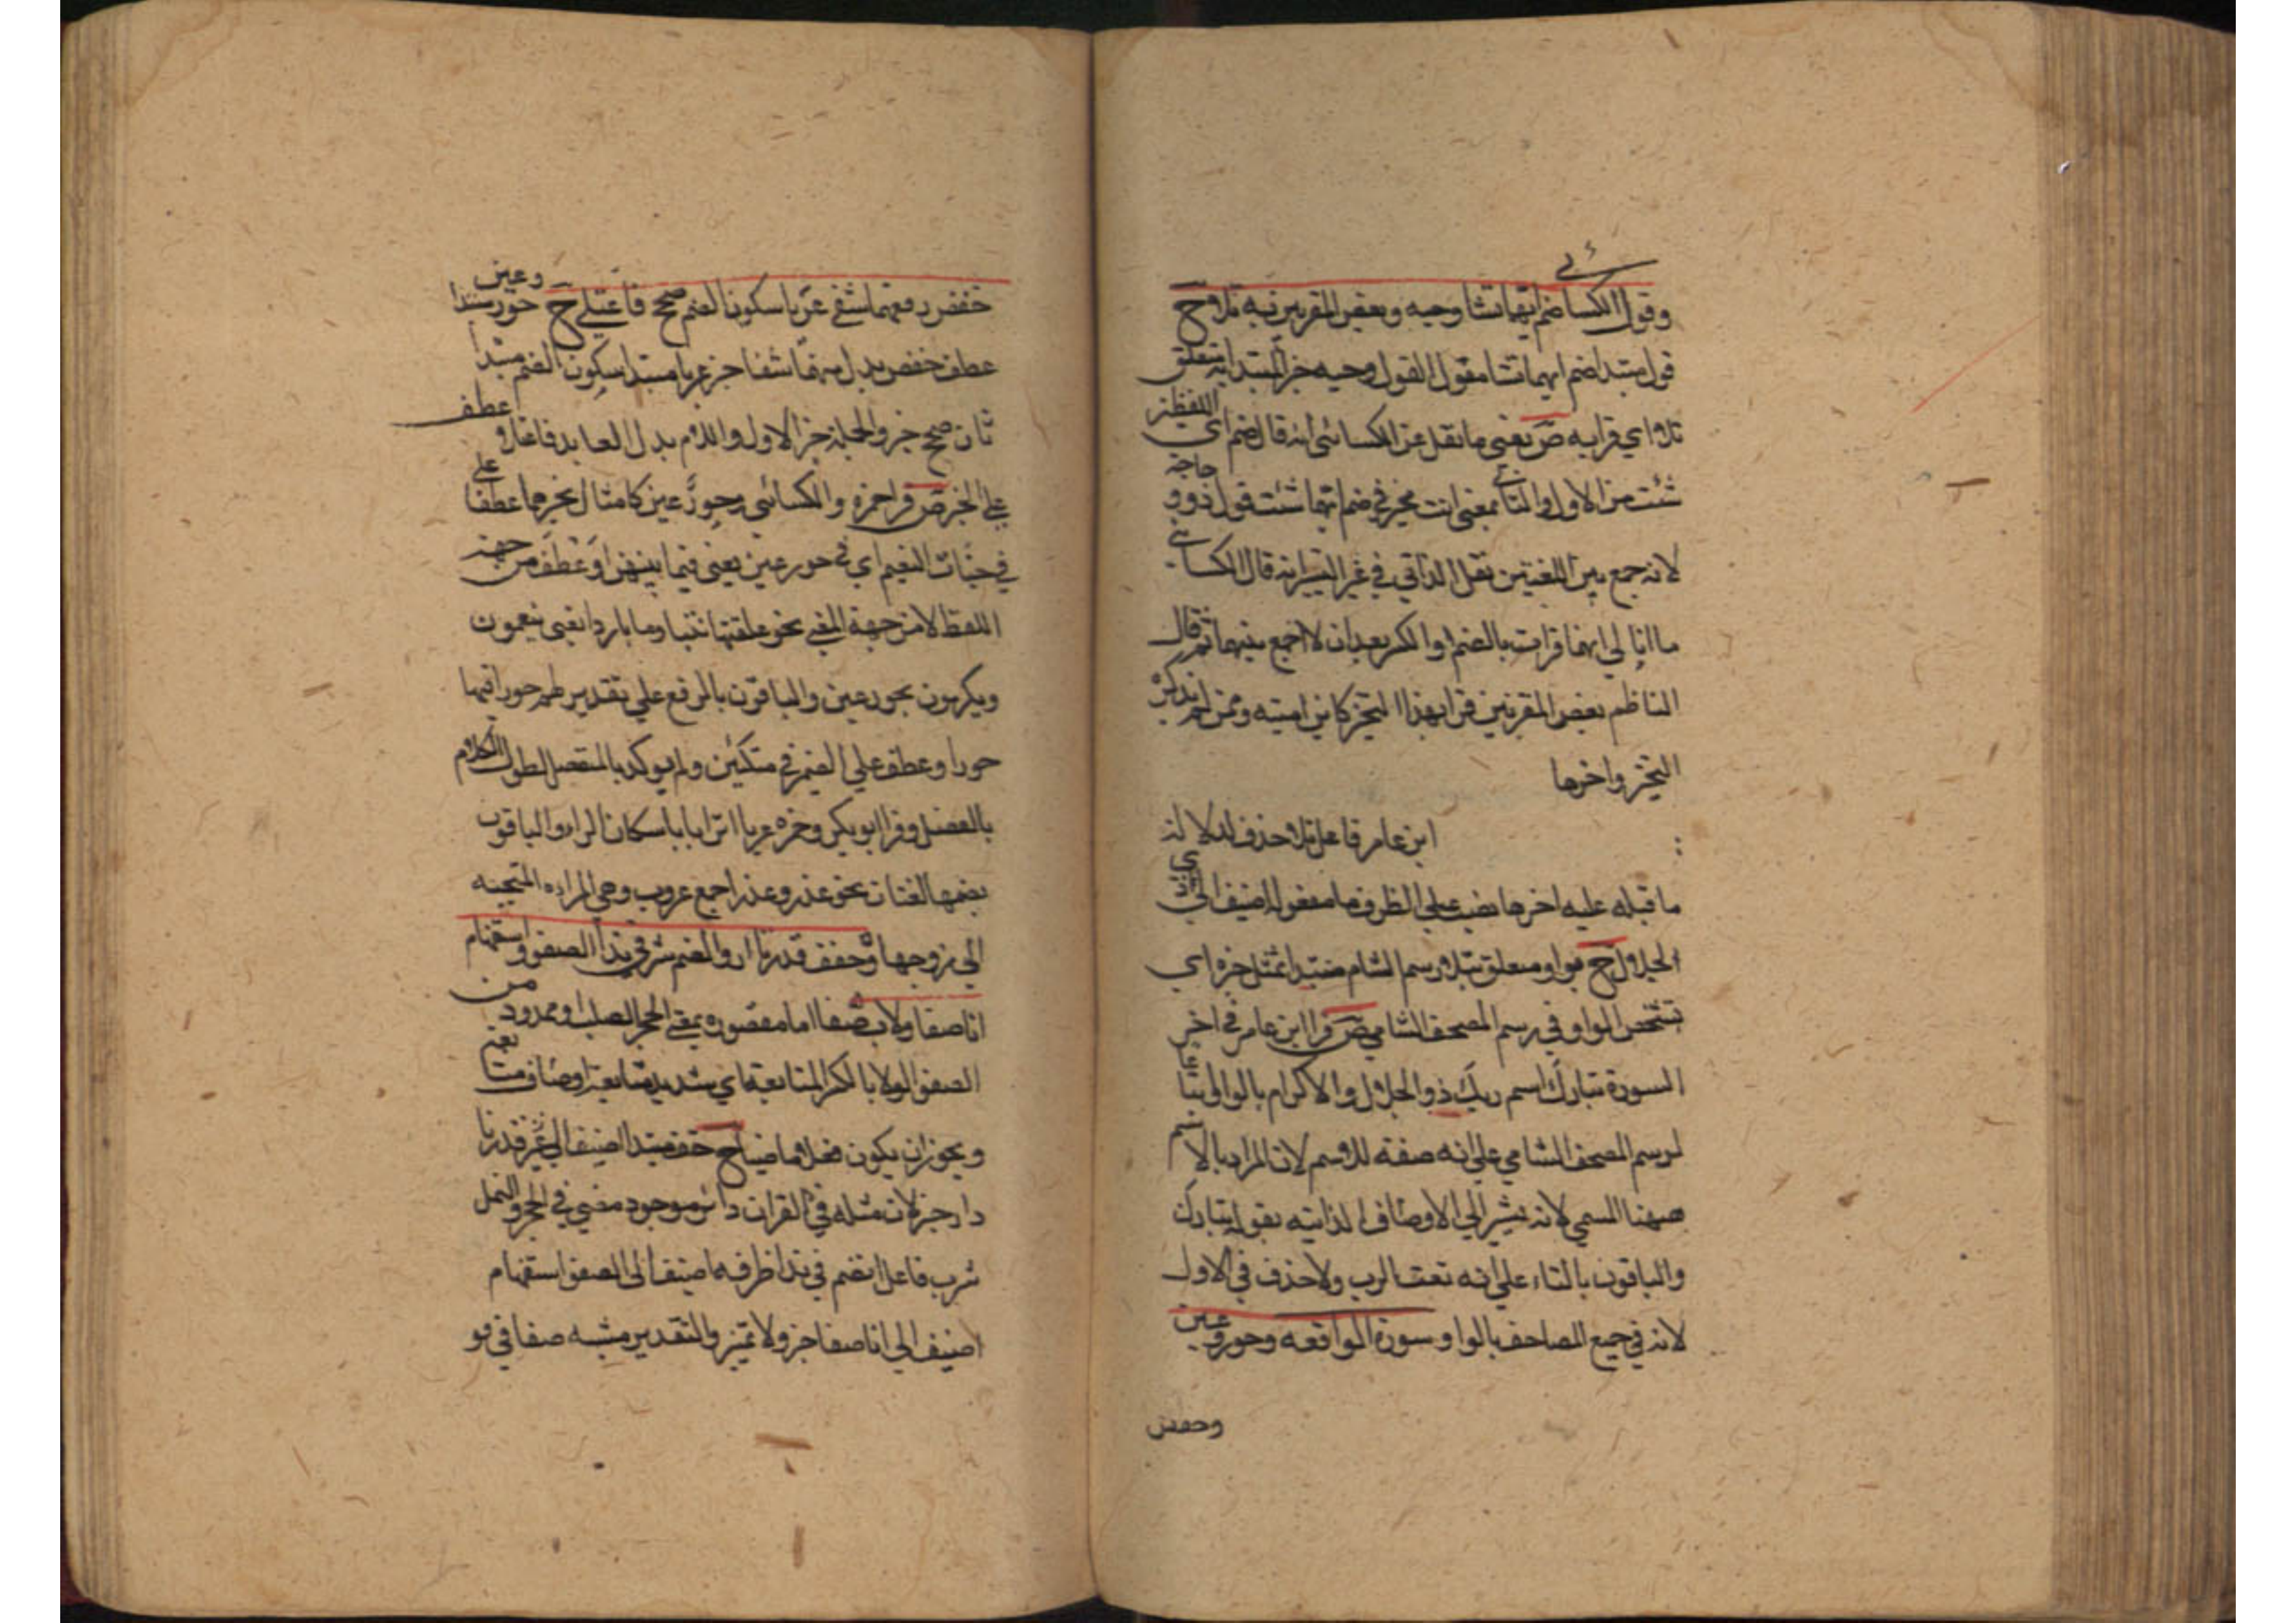 وقول الكسائي ضم ايهما تشا وجيه وبعض المقرئين به تلا وح
قول مبتدا ضم ايهما تشا مقول القول وجيه خبر المبتدا به متعلق
تلا اي قرا به ص يعني ما نقل عن الكسائي انه قال ضم اي اللفظين
شئت من الاول والثاني بمعنى انت مخير في ضم ايهما شئت قول ذو وجاهة
لانه جمع بين اللغتين نقل الداني في غير التيسير انه قال الكسائي
ما ابالي ايهما قرات بالضم او الكسر بعد ان لا اجمع بينهما ثم قال
الناظم بعض المقرئين قرا بهذا التخيير كابن اشته وممن لم يذكر
التخيير واخرها
ابن عامر فاعل تلا وحذف لدلالة
ما قبله عليه اخرها نصب على الظرف يا مفعوله اضيف الى ذي
الجلال ح بواو متعلق بتلا ورسم الشام مبتدا تمثل خبره اي
تشخص الواو في رسم المصحف الشامي ص قرا ابن عامر في اخر
السورة تبارك اسم ربك ذو الجلال والاكرام بالواو اتباعا
لرسم المصحف الشامي على انه صفة للاسم لان المراد بالاسم
ههنا المسمى لانه يشير الى الاوصاف الذاتيه بقوله تبارك
والباقون بالياء على انه نعت الرب ولا حذف في الاول
لانه في جميع المصاحف بالواو سورة الواقعه وحور وعين
وخفض
خفض رفعهما شفى عربا سكون الضم صحح فاعتلى ح حور مبتدا وعين
عطف خفض بدل منهما شفا خبر عربا مبتدا سكون الضم مبتدا
ثان صحح خبر والجملة خبر الاول واللام بدل العايد فاعتلى عطف
على الخبر ص قرا حمزة والكسائي وحور عين كامثال بجرهما عطفا على
في جنات النعيم اي في حور عين يعني فيما بينهن او عطف من جهة
اللفظ لا من جهة المعنى نحو علفتها تبنا وما باردا يعني ينعمون
ويكرمون بحور عين والباقون بالرفع على تقدير لهم حور او فيها
حور او عطف على الضمير في متكئين ولم يوكد بالمنفصل لطول الكلام
بالفصل وقرا ابو بكر وحمزه عربا اترابا باسكان الراء والباقون
بضمها لغتان نحو عذر وعذر اجمع عروب وهي المراه المتحببه
الى زوجها وخفف قدرنا دار وانضم شرب في ندا الصفو واستفهام
انا صفا ولا ب صفا اما مقصوره بمعنى الحجر الصلب او ممدود من
الصفو الولا بالكسر المتابعة اي شديد متابعة اوصاف متا
ويجوز ان يكون ح خفف مبتدا اضيف الى قدرنا
دار خبر لان مثله في القران دائر موجود مضى في الحجر والنمل
شرب فاعل انضم في ندا ظرف اضيف الى الصفو استفهام
اضيف الى انا صفا خبر ولا تمييز والتقدير مشبه صفا في